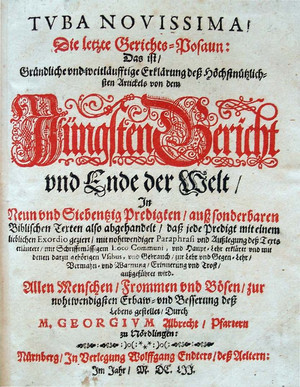 TVBA NOVISSIMA/
Die letzte Gerichts-Posaun:
Das ist/
Gründliche vnd weitläufftige Erklärung deß Höchstnützlich-
sten Articels von dem
Jüngsten Gericht
vnd Ende der Welt/
In
Neun vnd Siebentzig Predigten/ auß sonderbaren
Biblischen Texten also abgehandelt/ daß jede Predigt mit einem
lieblichen Exordio geziert/ mit nohtwendiger Paraphrasi vnd Außlegung deß Texts
erläutert/ mit Schrifftmässigem Loco Communi, vnd Haupt-Lehr erkläret vnd mit
denen darzu gehörigen Vsibus, vnd Gebrauch/ zur Lehr vnd Gegen-Lehr/
Vermahn- vnd Warnung/ Erinnerung vnd Trost/
außgeführet wird.
Allen Menschen/ Frommen vnd Bösen/ zur
nohtwendigsten Erbaw- vnd Besserung deß
Lebens gestellet/ Durch
M. GEORGIVM Albrecht/ Pfarrern
zu Nördlingen:
Nürnberg/ In Verlegung Wolffgang Endters/ deß Aeltern:
Im Jahr/ M. DC. LII.